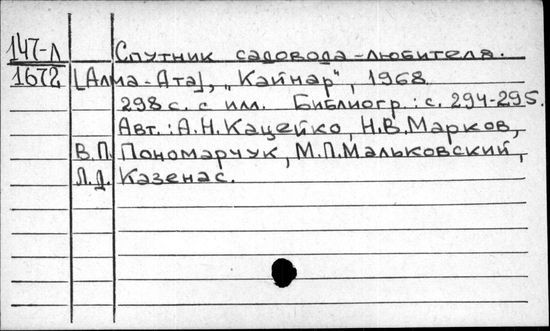 147-Л Спутник садовода-любителя.
1672 [Алма-Ата], „Кайнар", 1968
298 с. с илл. Библиогр.: с. 294-295.
Авт.: А.Н.Кацейко, Н.В.Марков,
В.П. Пономарчук, М.П.Мальковский,
Л.Д. Казенас.